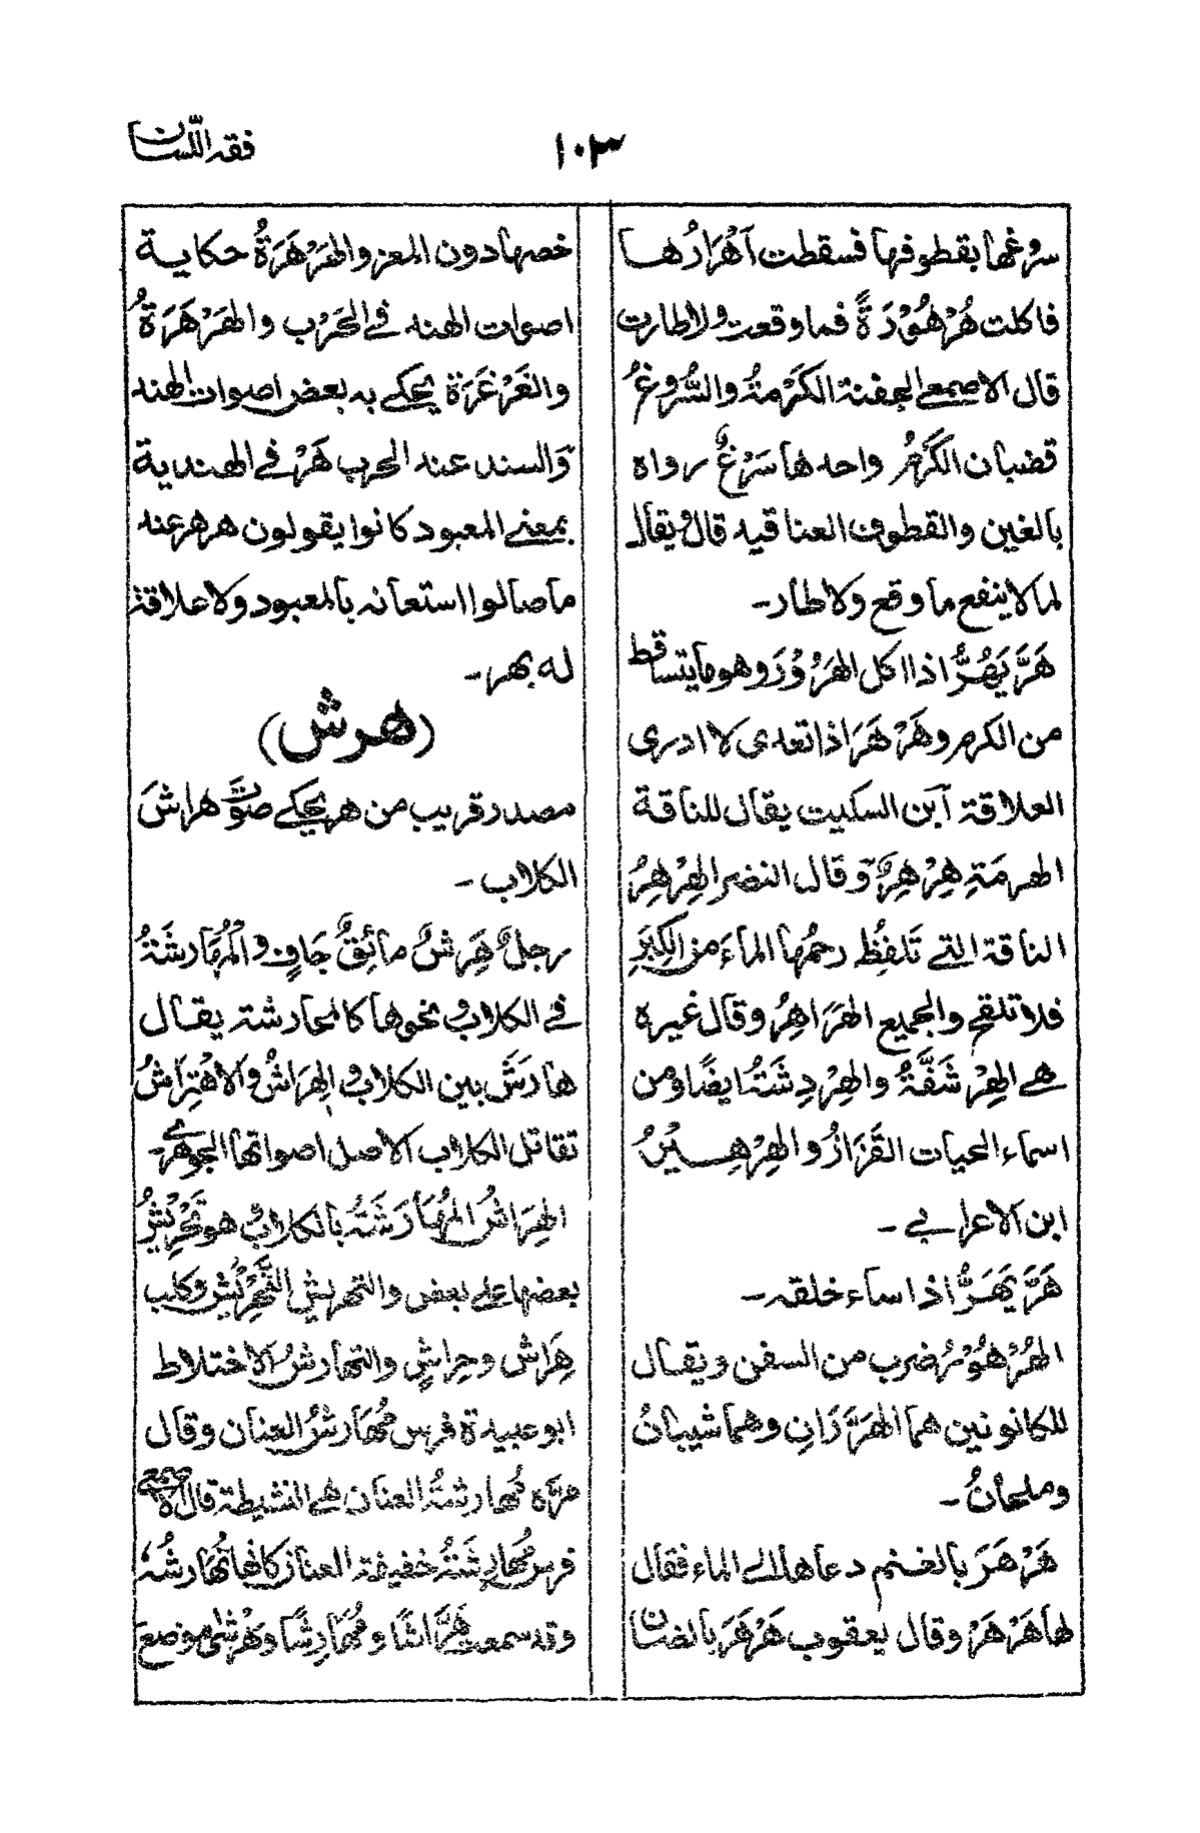 فقه اللّسان
١٠٣
سروغها بقطوفها فسقطت اَهْرَارُها
فاكلت هُرْهُوْرَةً فما وقعت ولا طارت
قال الاصمعي الجفنة الكَرْمةُ والسُّرُوْغُ
قضبان الكَرْمِ واحدها سَرْغٌ رواه
بالغين والقطوف العناقيد قال ويقال
لما لا ينفع ما وقع ولا طار-
هَرَّ يَهُرُّ اذا اكل الهَرُوْرَ وهو ما يتساقط
من الكرم وهَرْهَرَ اذا تعدى لا ادرى
العلاقة اَبن السكيت يقال للناقة
الهرمَةِ هِرْهِرٌ وقال النضر الهِرْهِرُ
الناقة التي تَلفِظُ رحمُها الماءَ من الكِبَرِ
فلا تلقح والجميع الهَرَاهِرُ وقال غيره
هي الهِرْشَفَّةُ والهِرْدِشَةُ ايضًا ومن
اسماء الحيات القَزَازُ والهِرْهِيْرُ
ابن الاعرابي -
هَرَّ يَهَرُّ اذا ساء خلقه-
الهُرْهُوْرُ ضرب من السفن ويقال
للكانونين هما الهَرَّارَانِ وهما شيبانُ
وملحانُ-
هَرْهَرَ بالغنم دعاها الى الماء فقال
لها هَرْهَرْ وقال يعقوب هَرْهَرَ بالضان
خصها دون المعز والهَرْهَرَةُ حكاية
اصوات الهند في الحَرْب والهَرْهَرَةُ
والغَرْغَرَة يحكي به بعض اصوات الهند
وَالسند عند الحرب هَرْ في الهندية
بمعنى المعبود كانوا يقولون هر هر عند
ما صالوا استعانه بالمعبود ولا علاقة
له بهر-
(هرش)
مصدر قريب من هر يحكي صوتَ هراشَ
الكلاب-
رجلٌ هَرِشٌ مائِقٌ جَافٍ والْمُهَارشَةُ
في الكلاب ونحوها كالمحارشة يقال
هارَشَ بين الكلاب والهِرَاشُ والاهْتِرَاشُ
تقاتل الكلاب الاصل اصواتها الجوهري-
الهِرَاشُ المُهَارَشَةُ بالكلاب وهو تَحْرِيْشُ
بعضها على بعض والتهريش التَّحْرِيْش وكلب
هِرَاش وحِراشٍ والتهارشُ الاختلاط
ابو عبيدة فرس مُهَارشُ العنان وقال
مرَّه مُهارشةُ العنان هي النشيطة قال الاصمعي
فرس مُهَارِشَةُ خفيفة العنان كانها تُهَارشُهُ
وقد سمعت هَرَّاشًا ومُهَارِشًا وهَرْشى موضع